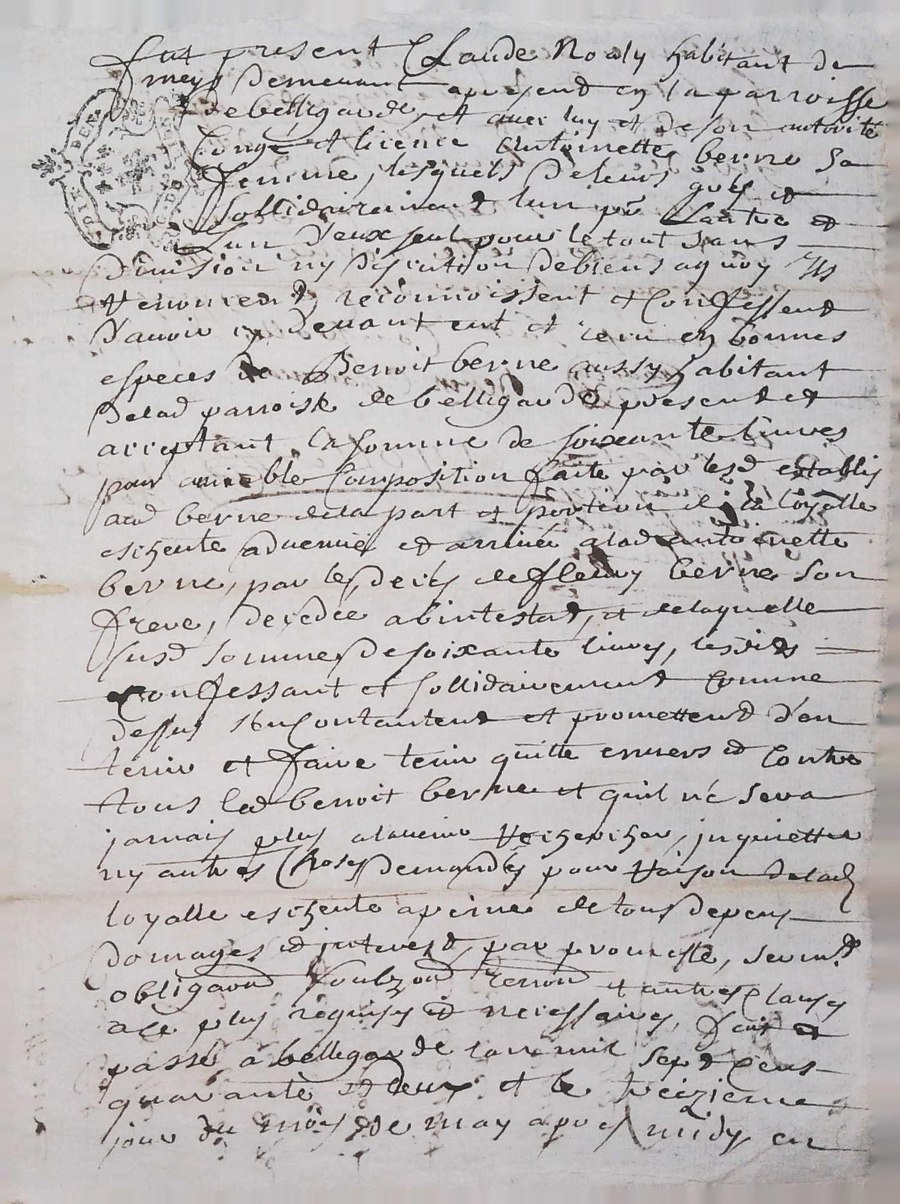 Fut present Claude Noaly habitant de
mey Demeurant apresent en la parroisse
de bellegarde, et avec luy et de son autorité
Congé et licence Antoinette berne Sa
femme, lesquels De leurs grés et
Sollidairement l'un pour Lautre et
L'un d'eux seul pour le tout Sans
Division ny Discution De biens a quoy Ils
Renoncent, reconnoissent et Confessent
D'avoir cy Devant eut et receu en bonnes
especes de Benoit berne aussy habitant
De lad parroisse de bellegarde present et
acceptant la somme de soixante livres
pour amiable Composition faite par lesd establis
aud berne de la part et portion de la loyalle
escheute advenue et arrivée a lad antoinette
berne, par le deces de fleury berne Son
frere, Decedée abintestat, et de laquelle
susd somme De soixante livres, lesdits
Confessant et sollidairement Comme
Dessus s'en Contantent et promettent D'en
tenir et faire tenir quitte envers et Contre
tous led benoit berne et qu'il n'e Sera
jamais plus alavenir Rechercher, inquietter
ny autres Choses Demandés pour Raison De lad
loyalle escheute a peine de tous Depens
Domages et interest, par promesse, serm.t
obligaon Soubzon renon et autres Clauses
a ce plus requises et necessaires, fait et
passé à bellegarde l'an mil sept Cens
quarante et Deux et le treizieme
jour du mois de may apres midy en